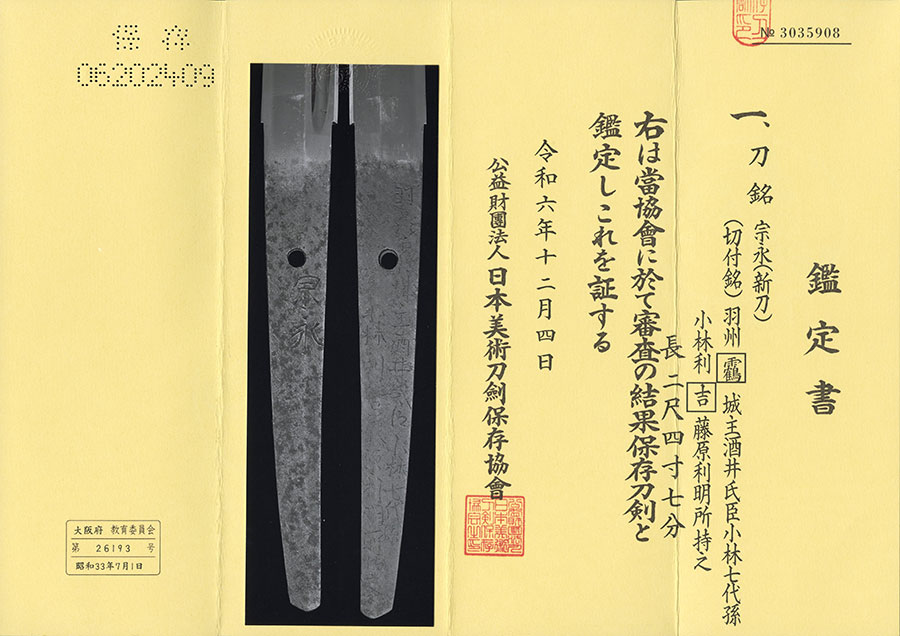 № 3035908
鑑定書
一、刀 銘 宗永(新刀)
(切付銘)羽州靍城主酒井氏臣小林七代孫
小林利吉藤原利明所持之
長二尺四寸七分
右は當協會に於て審査の結果保存刀剣と
鑑定しこれを証する
令和六年十二月四日
公益財團法人日本美術刀劍保存協會
宗永
保存
06202409
大阪府 教育委員会
第 26193 号
昭和33年7月1日